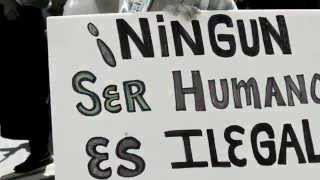 ¡NiNGUN
SER HUMANO
ES ILEGAL